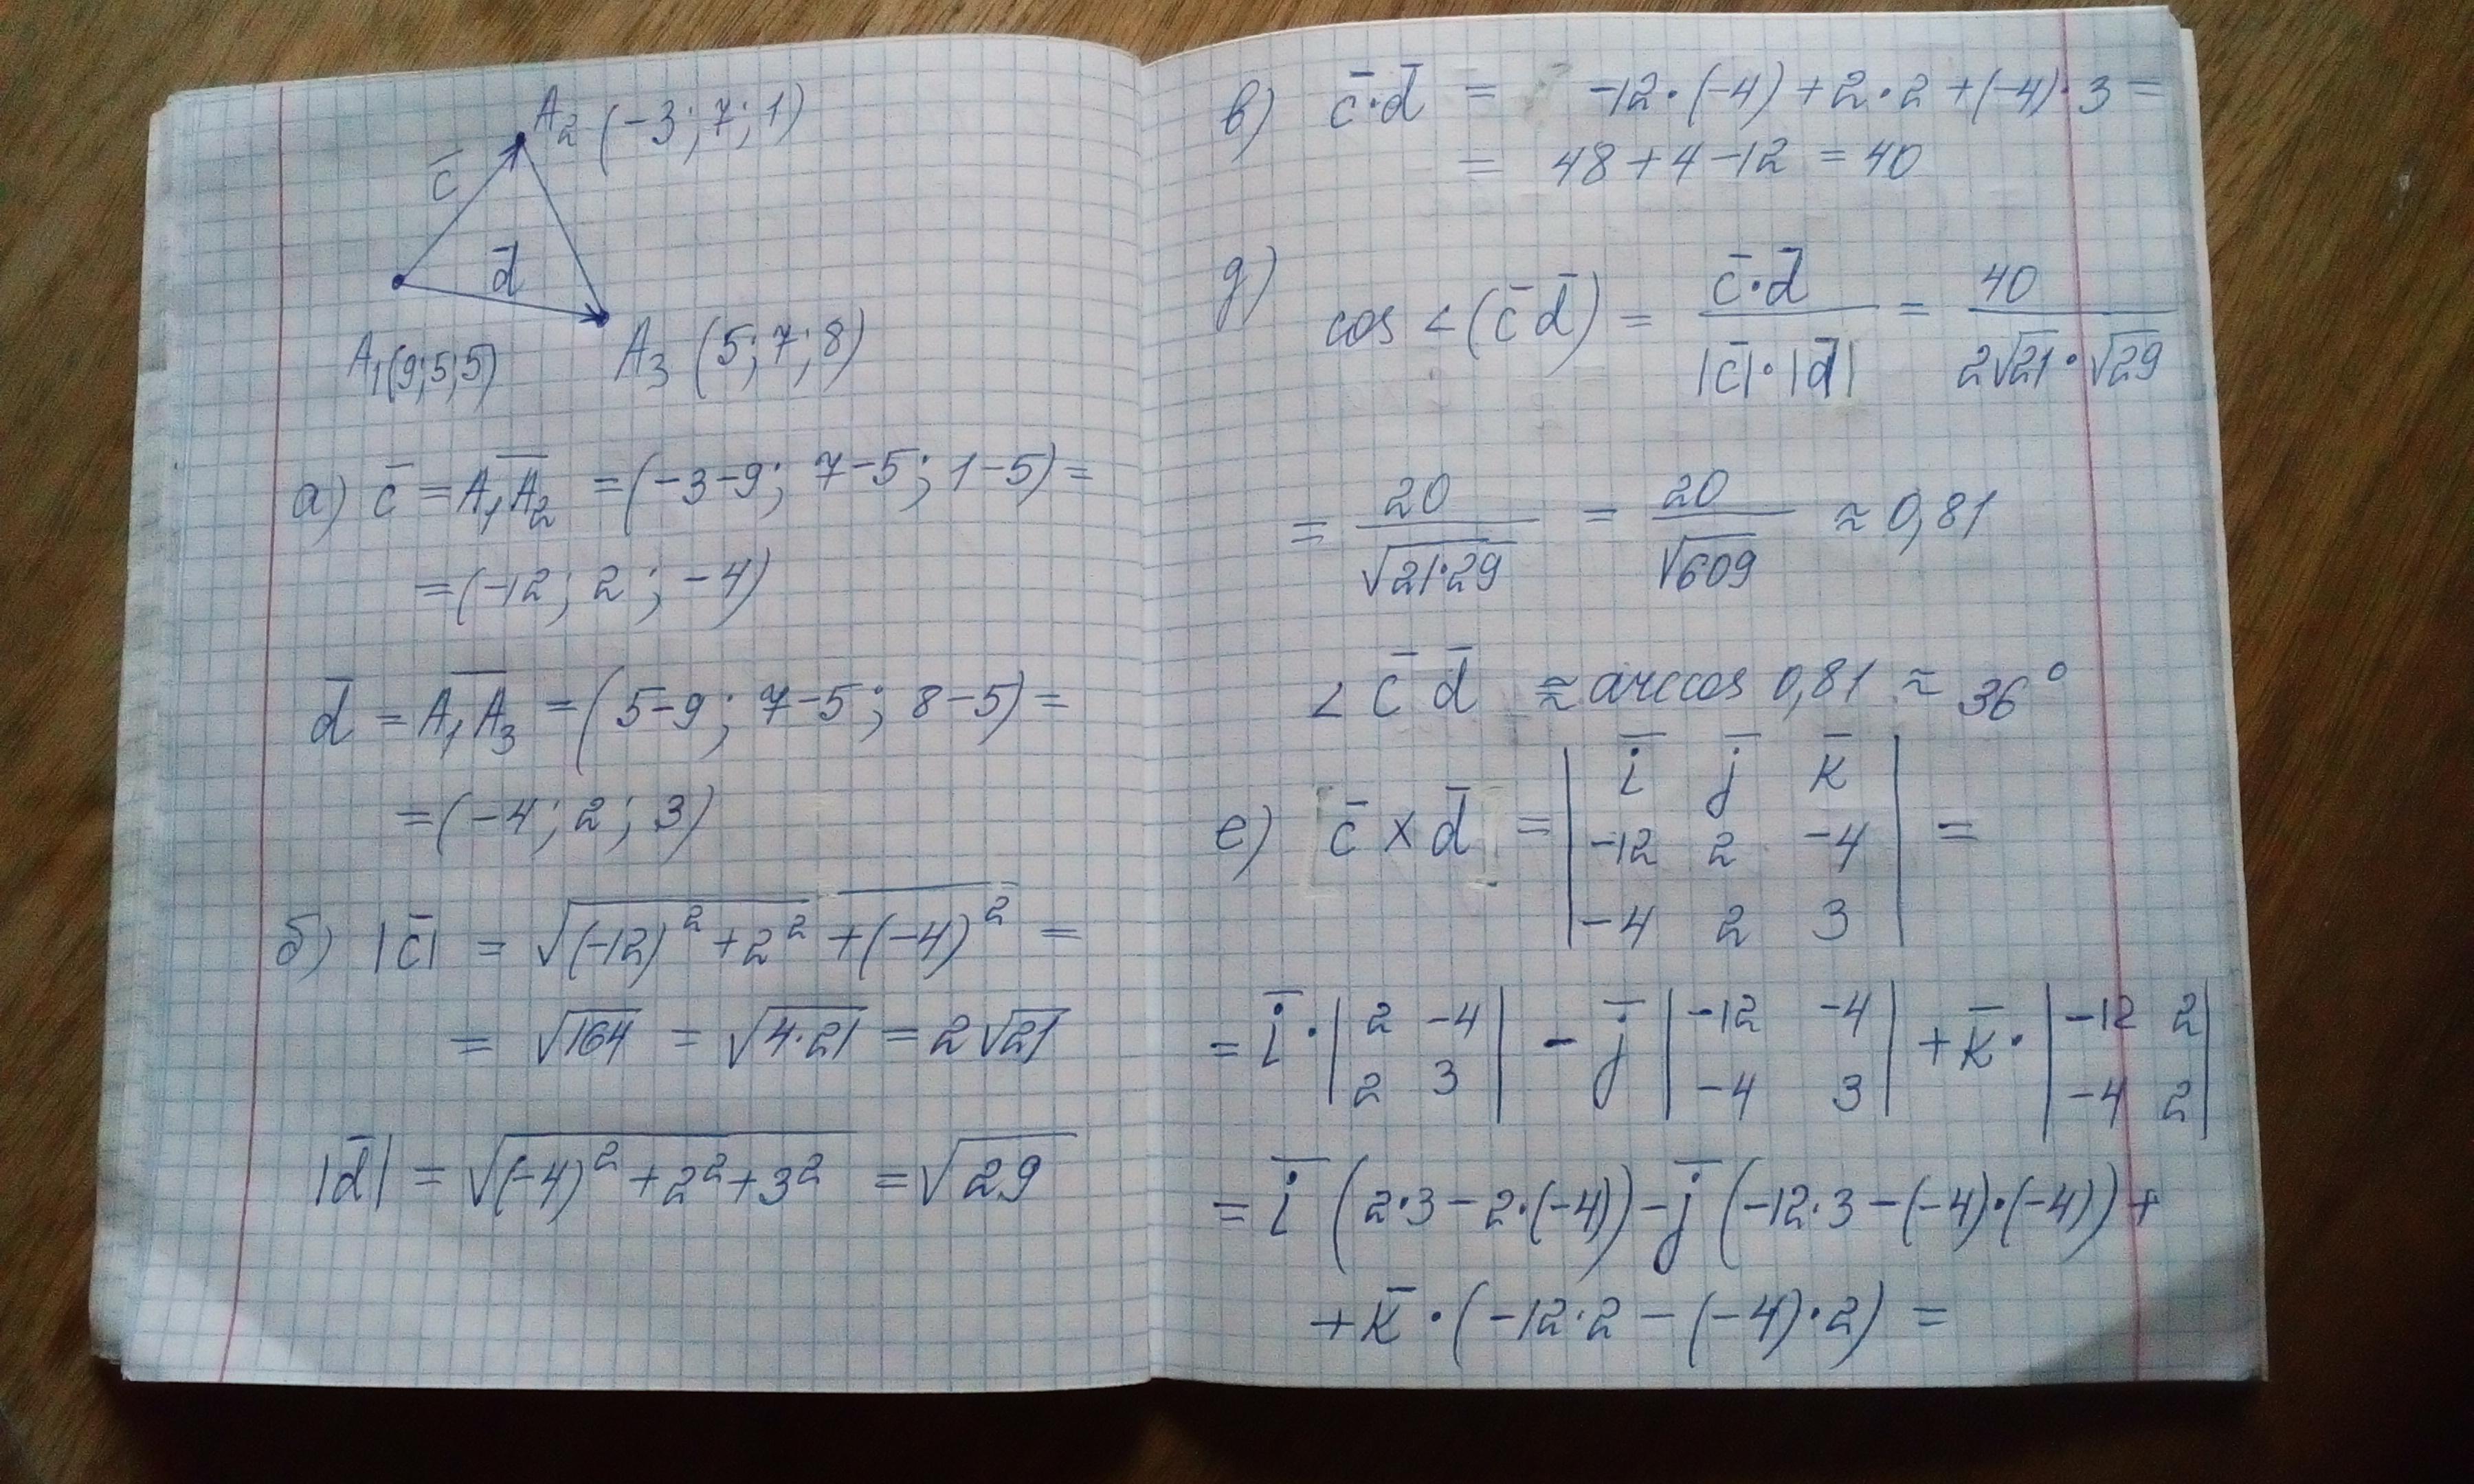 A₂ (-3; 7; 1)
c̄
d̄
A₁(9;5;5)
A₃ (5; 7; 8)
а) c̄ = A₁A₂ = (-3-9; 7-5; 1-5) =
= (-12; 2; -4)
d̄ = A₁A₃ = (5-9; 7-5; 8-5) =
= (-4; 2; 3)
б) |c̄| = √((-12)² + 2² + (-4)²) =
= √164 = √(4·21) = 2√21
|d̄| = √((-4)² + 2² + 3²) = √29
в) c̄·d̄ = -12·(-4) + 2·2 + (-4)·3 =
= 48 + 4 - 12 = 40
д) cos < (c̄ d̄) = c̄·d̄ / |c̄|·|d̄| = 40 / 2√21·√29
= 20 / √(21·29) = 20 / √609 ≈ 0,81
< c̄ d̄ ≈ arccos 0,81 ≈ 36°
е) c̄ × d̄ = | ī j̄ k̄ |
| -12 2 -4 | =
| -4 2 3 |
= ī · | 2 -4 | - j̄ | -12 -4 | + k̄ · | -12 2 |
| 2 3 | | -4 3 | | -4 2 |
= ī (2·3 - 2·(-4)) - j̄ (-12·3 - (-4)·(-4)) +
+ k̄ · (-12·2 - (-4)·2) =